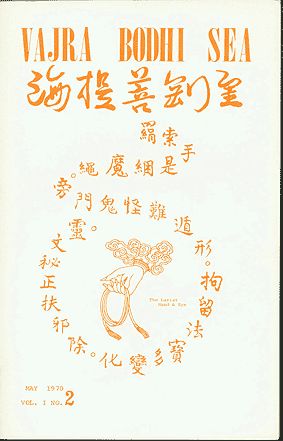 VAJRA BODHI SEA
金剛菩提海
羂索手是網魔繩。
旁門鬼怪難遁形。
拘留法寶多變化。
除邪扶正秘文靈。
The Lariat
Hand & Eye
MAY 1970
VOL. I NO. 2